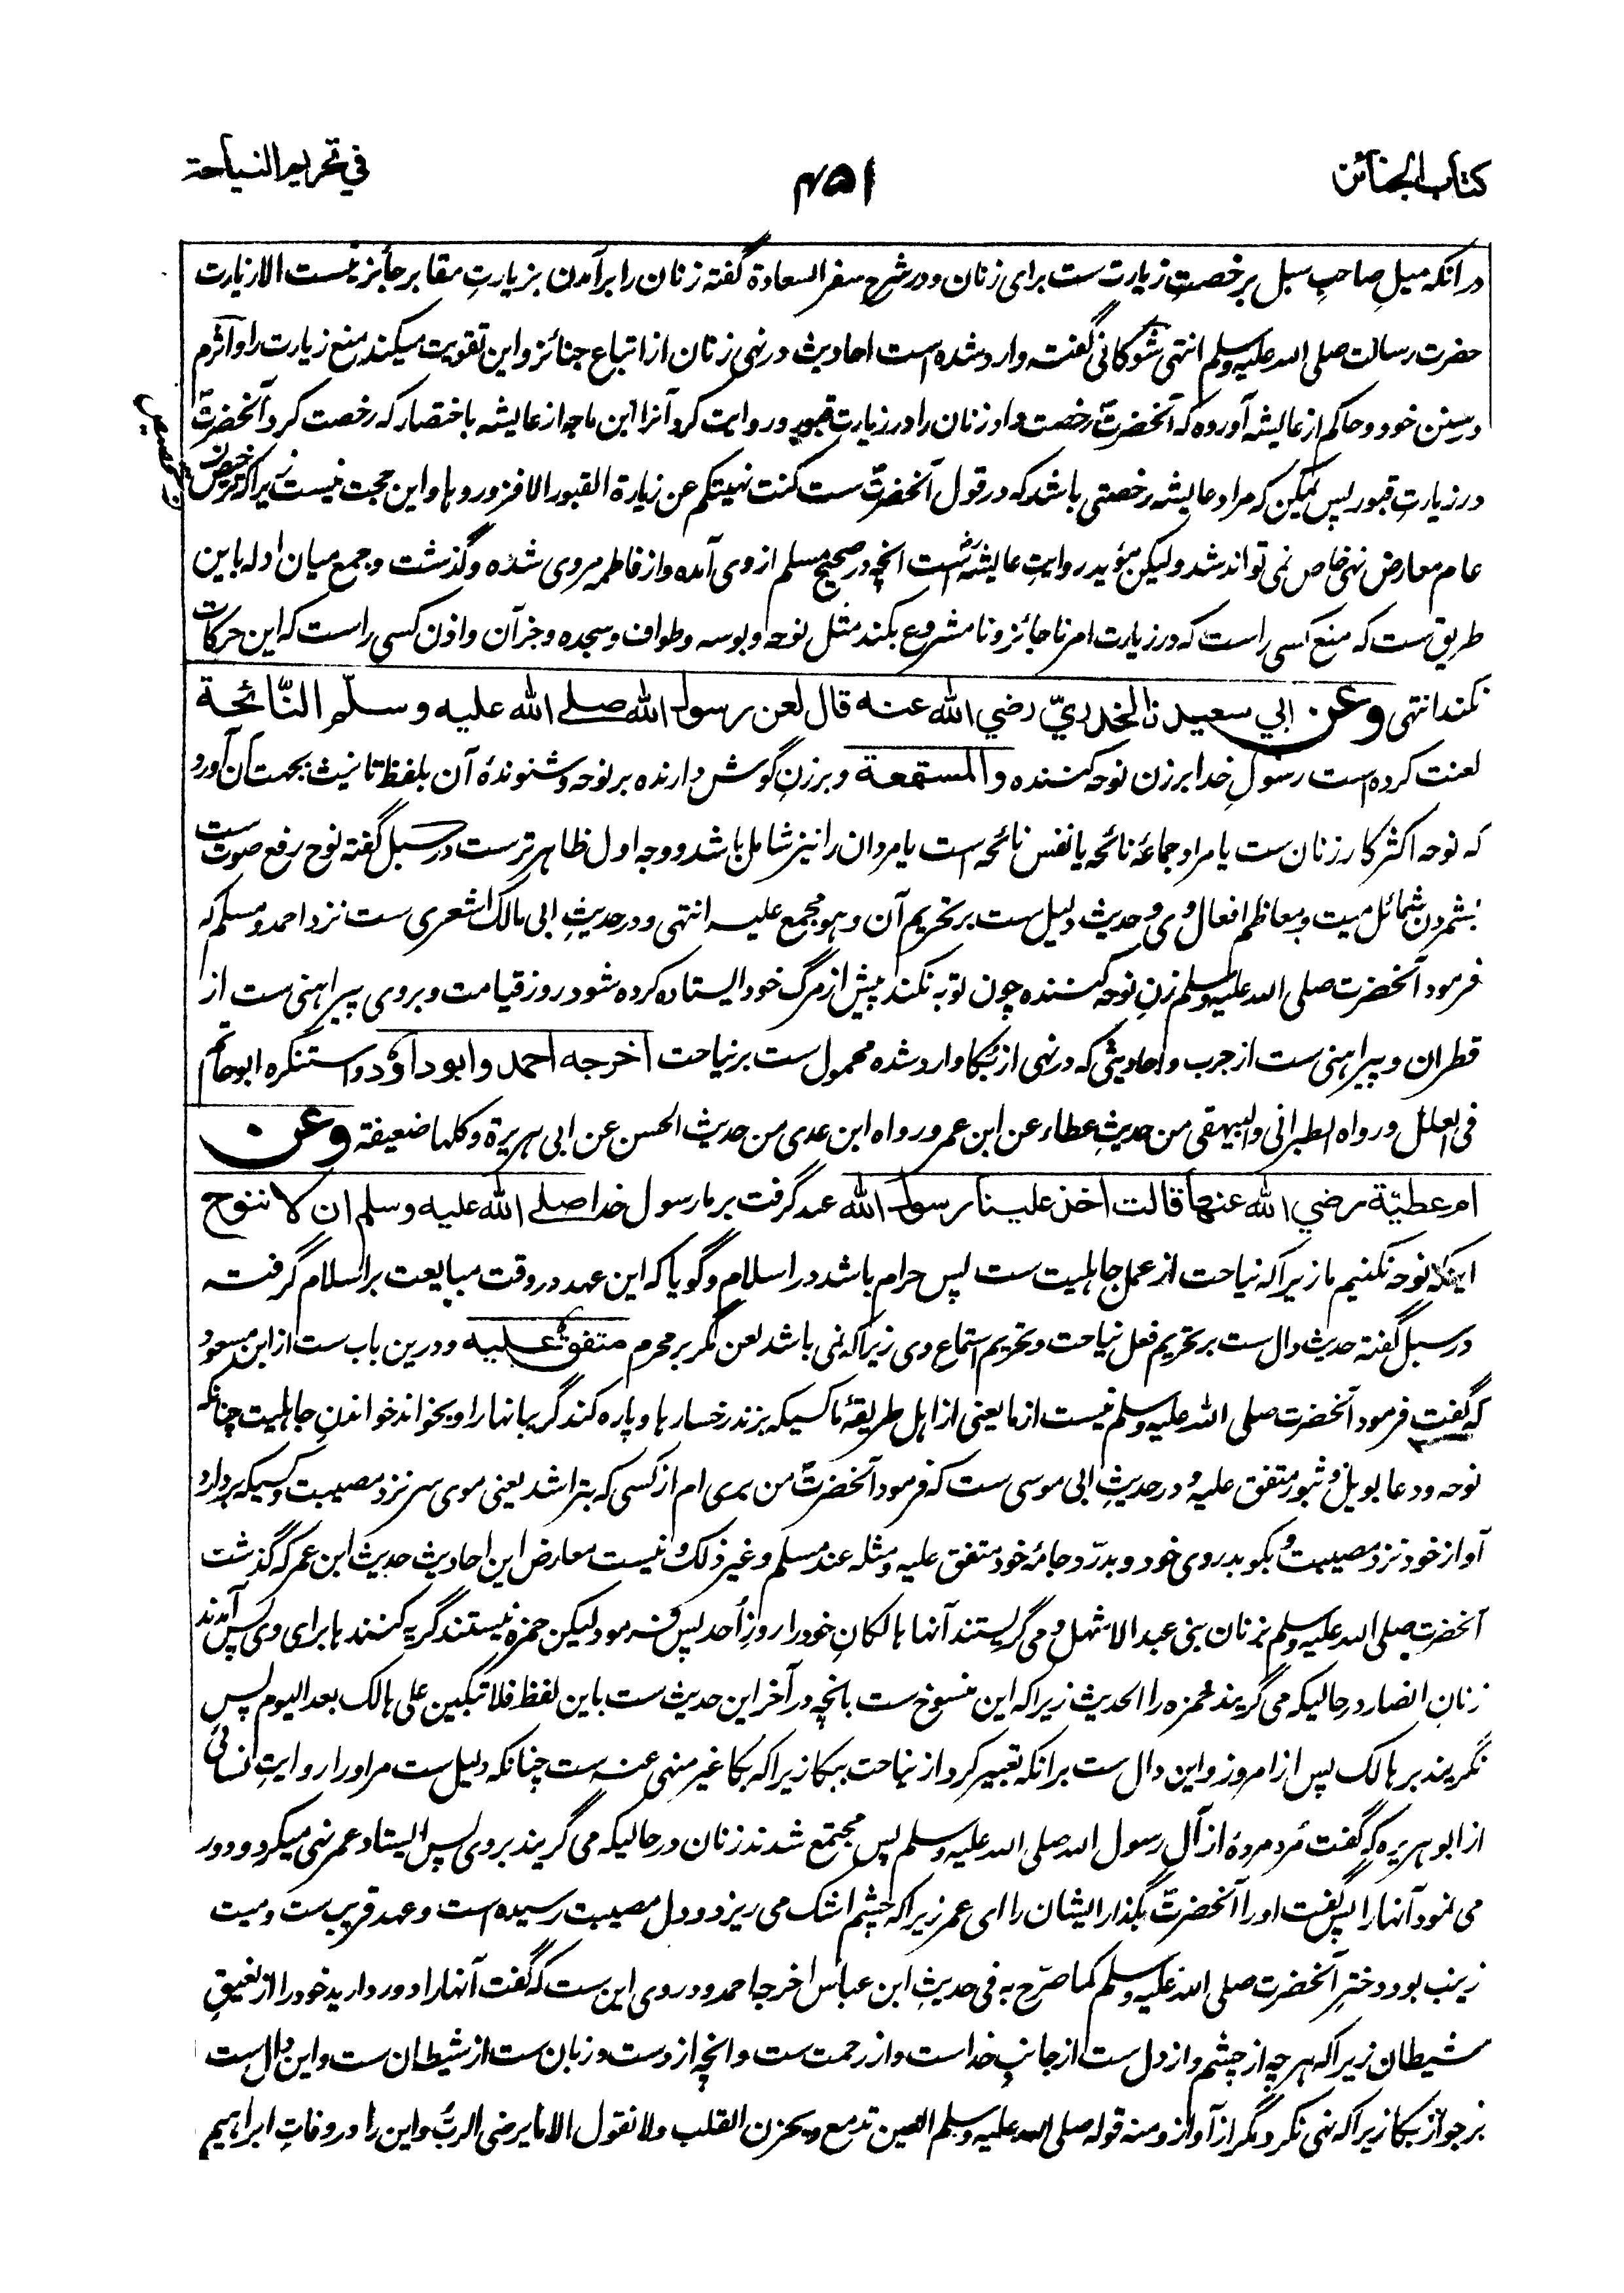 کتاب الجنائز
۴۵۱
في تحريم النياحة
در آنکه میل صاحبِ سبل بر خصتِ زیارت ست برای زنان و در شرح سفر السعادة گفته زنان را بر آمدن بزیارتِ مقابر جائز نیست الا زیارت
حضرت رسالت صلی الله علیه وسلم انتهی شوکانی گفته وارد شده است احادیث در نهی زنان از اتباع جنائز و این تقویت میکند منع زیارت را و اثرم
در سنن خود و حاکم از عایشه آورده که آنحضرتؐ رخصت داد زنان را در زیارتِ قبور و روایت کرد آنرا ابن ماجه از عایشه باختصار که رخصت کرد آنحضرتؐ
در زیارتِ قبور پس ممکن که مراد عایشه رخصتی باشد که در قول آنحضرتؐ ست کنت نهیتکم عن زیارة القبور الا فزوروها و این حجت نیست زیرا که ترخیص
عام معارض نهی خاص نمی تواند شد ولیکن مؤید روایتِ عایشهؓ ست انچه در صحیح مسلم از وی آمده و از فاطمه مروی شده و گذشت و جمع میان ادله باین
طریق ست که منع کسی راست که در زیارت امر ناجائز و نامشروع بکند مثل نوحه و بوسه و طواف و سجده و جز آن و اذن کسی راست که این حرکات
نکند انتهی وعن ابي سعيد ن الخدريّ رضي الله عنه قال لعن رسول الله صلے الله عليه وسلّم النّائحة
لعنت کرده است رسولِ خدا بر زن نوحه کننده والمستمعة و بر زنِ گوش دارنده بر نوحه و شنوندهٔ آن بلفظ تانیث بجهت آن آورد
که نوحه اکثر کار زنان ست یا مراد جماعهٔ نائحه یا نفس نائحه است یا مردان را نیز شامل باشد و وجه اول ظاهر ترست در سبل گفته نوح رفع صوت ست
بشمردن شمائل میت و معاظم افعال وی و حدیث دلیل ست بر تحریم آن و هو مجمع علیه انتهی و در حدیثِ ابی مالک اشعری ست نزد احمد و مسلم که
فرمود آنحضرت صلی الله علیه وسلم زنِ نوحه کننده چون توبه نکند پیش از مرگ خود ایستاده کرده شود روز قیامت و بر وی پیراهنی ست از
قطران و پیراهنی ست از جرب و احادیثی که در نهی از بکا وارد شده محمول ست بر نیاحت اخرجه احمد وابو داؤد و استنکره ابو حاتم
فی العلل ورواه الطبرانی والبیهقی من حدیثِ عطاء عن ابن عمر ورواه ابن عدی من حدیث الحسن عن ابی هریرة وکلها ضعیفة وعن
ام عطيّة رضي الله عنها قالت اخذ علينا رسول الله عهد گرفت بر ما رسول خدا صلے الله عليه وسلم ان لا ننوح
اینکه نوحه نکنیم ما زیرا که نیاحت از عمل جاهلیت ست پس حرام باشد در اسلام و گویا که این عهد در وقت مبایعت بر اسلام گرفته
در سبل گفته حدیث دال ست بر تحریم فعل نیاحت و تحریم استماع وی زیرا که نمی باشد لعن مگر بر محرم متفق عليه و درین باب ست از ابن مسعود
که گفت فرمود آنحضرت صلی الله علیه وسلم نیست از ما یعنی از اهل طریقهٔ ما کسیکه بزند رخسارها و پاره کند گریبانها را و بخواند خواندنِ جاهلیت چنانکه
نوحه و دعا بویل و ثبور متفق علیه و در حدیثِ ابی موسی ست که فرمود آنحضرتؐ من بری ام از کسی که بتراشد یعنی موی سر نزد مصیبت و کسیکه بردارد
آواز خود نزد مصیبت و بکوبد روی خود و بدرّد جامهٔ خود متفق علیه و مثله عند مسلم وغیر ذلک و نیست معارض این احادیث حدیث ابن عمر که گذشت
آنحضرت صلی الله علیه وسلم بزنان بنی عبد الاشهل و می گریستند آنها هالکانِ خود را روزِ اُحد پس فرمود لیکن حمزه نیستند گریه کننده ها برای وی پس آمدند
زنانِ انصار در حالیکه می گریند حمزه را الحدیث زیرا که این منسوخ ست بانچه در آخر این حدیث ست باین لفظ فلا تبکین علی هالک بعد الیوم پس
نگریند بر هالک پس از امروز و این دال ست بر انکه تعبیر کرد از نیاحت ببکا زیرا که بکا غیر منهی عنه ست چنانکه دلیل ست مر او را روایتِ نسائی
از ابو هریره که گفت مُرد مردهٔ از آلِ رسول الله صلی الله علیه وسلم پس مجتمع شدند زنان در حالیکه می گریند بر وی پس ایستاد عمر نهی میکرد و دور
می نمود آنها را پس گفت او را آنحضرتؐ بگذار ایشان را ای عمر زیرا که چشم اشک می ریزد و دل مصیبت رسیده است و عهد قریب ست و میت
زینب بود دخترِ آنحضرت صلی الله علیه وسلم کما صرّح به فی حدیثِ ابن عباس اخرجه احمد و در وی این ست که گفت آنها را دور دارید خود را از نعیقِ
شیطان زیرا که هر چه از چشم و از دل ست از جانبِ خداست و از رحمت ست و انچه از دست و زبان ست از شیطان ست و این دال ست
بر جواز بکا زیرا که نهی نکرد مگر از آواز و منه قوله صلی الله علیه وسلم العین تدمع ویحزن القلب ولا نقول الا ما یرضی الربّ و این را در وفاتِ ابراهیم